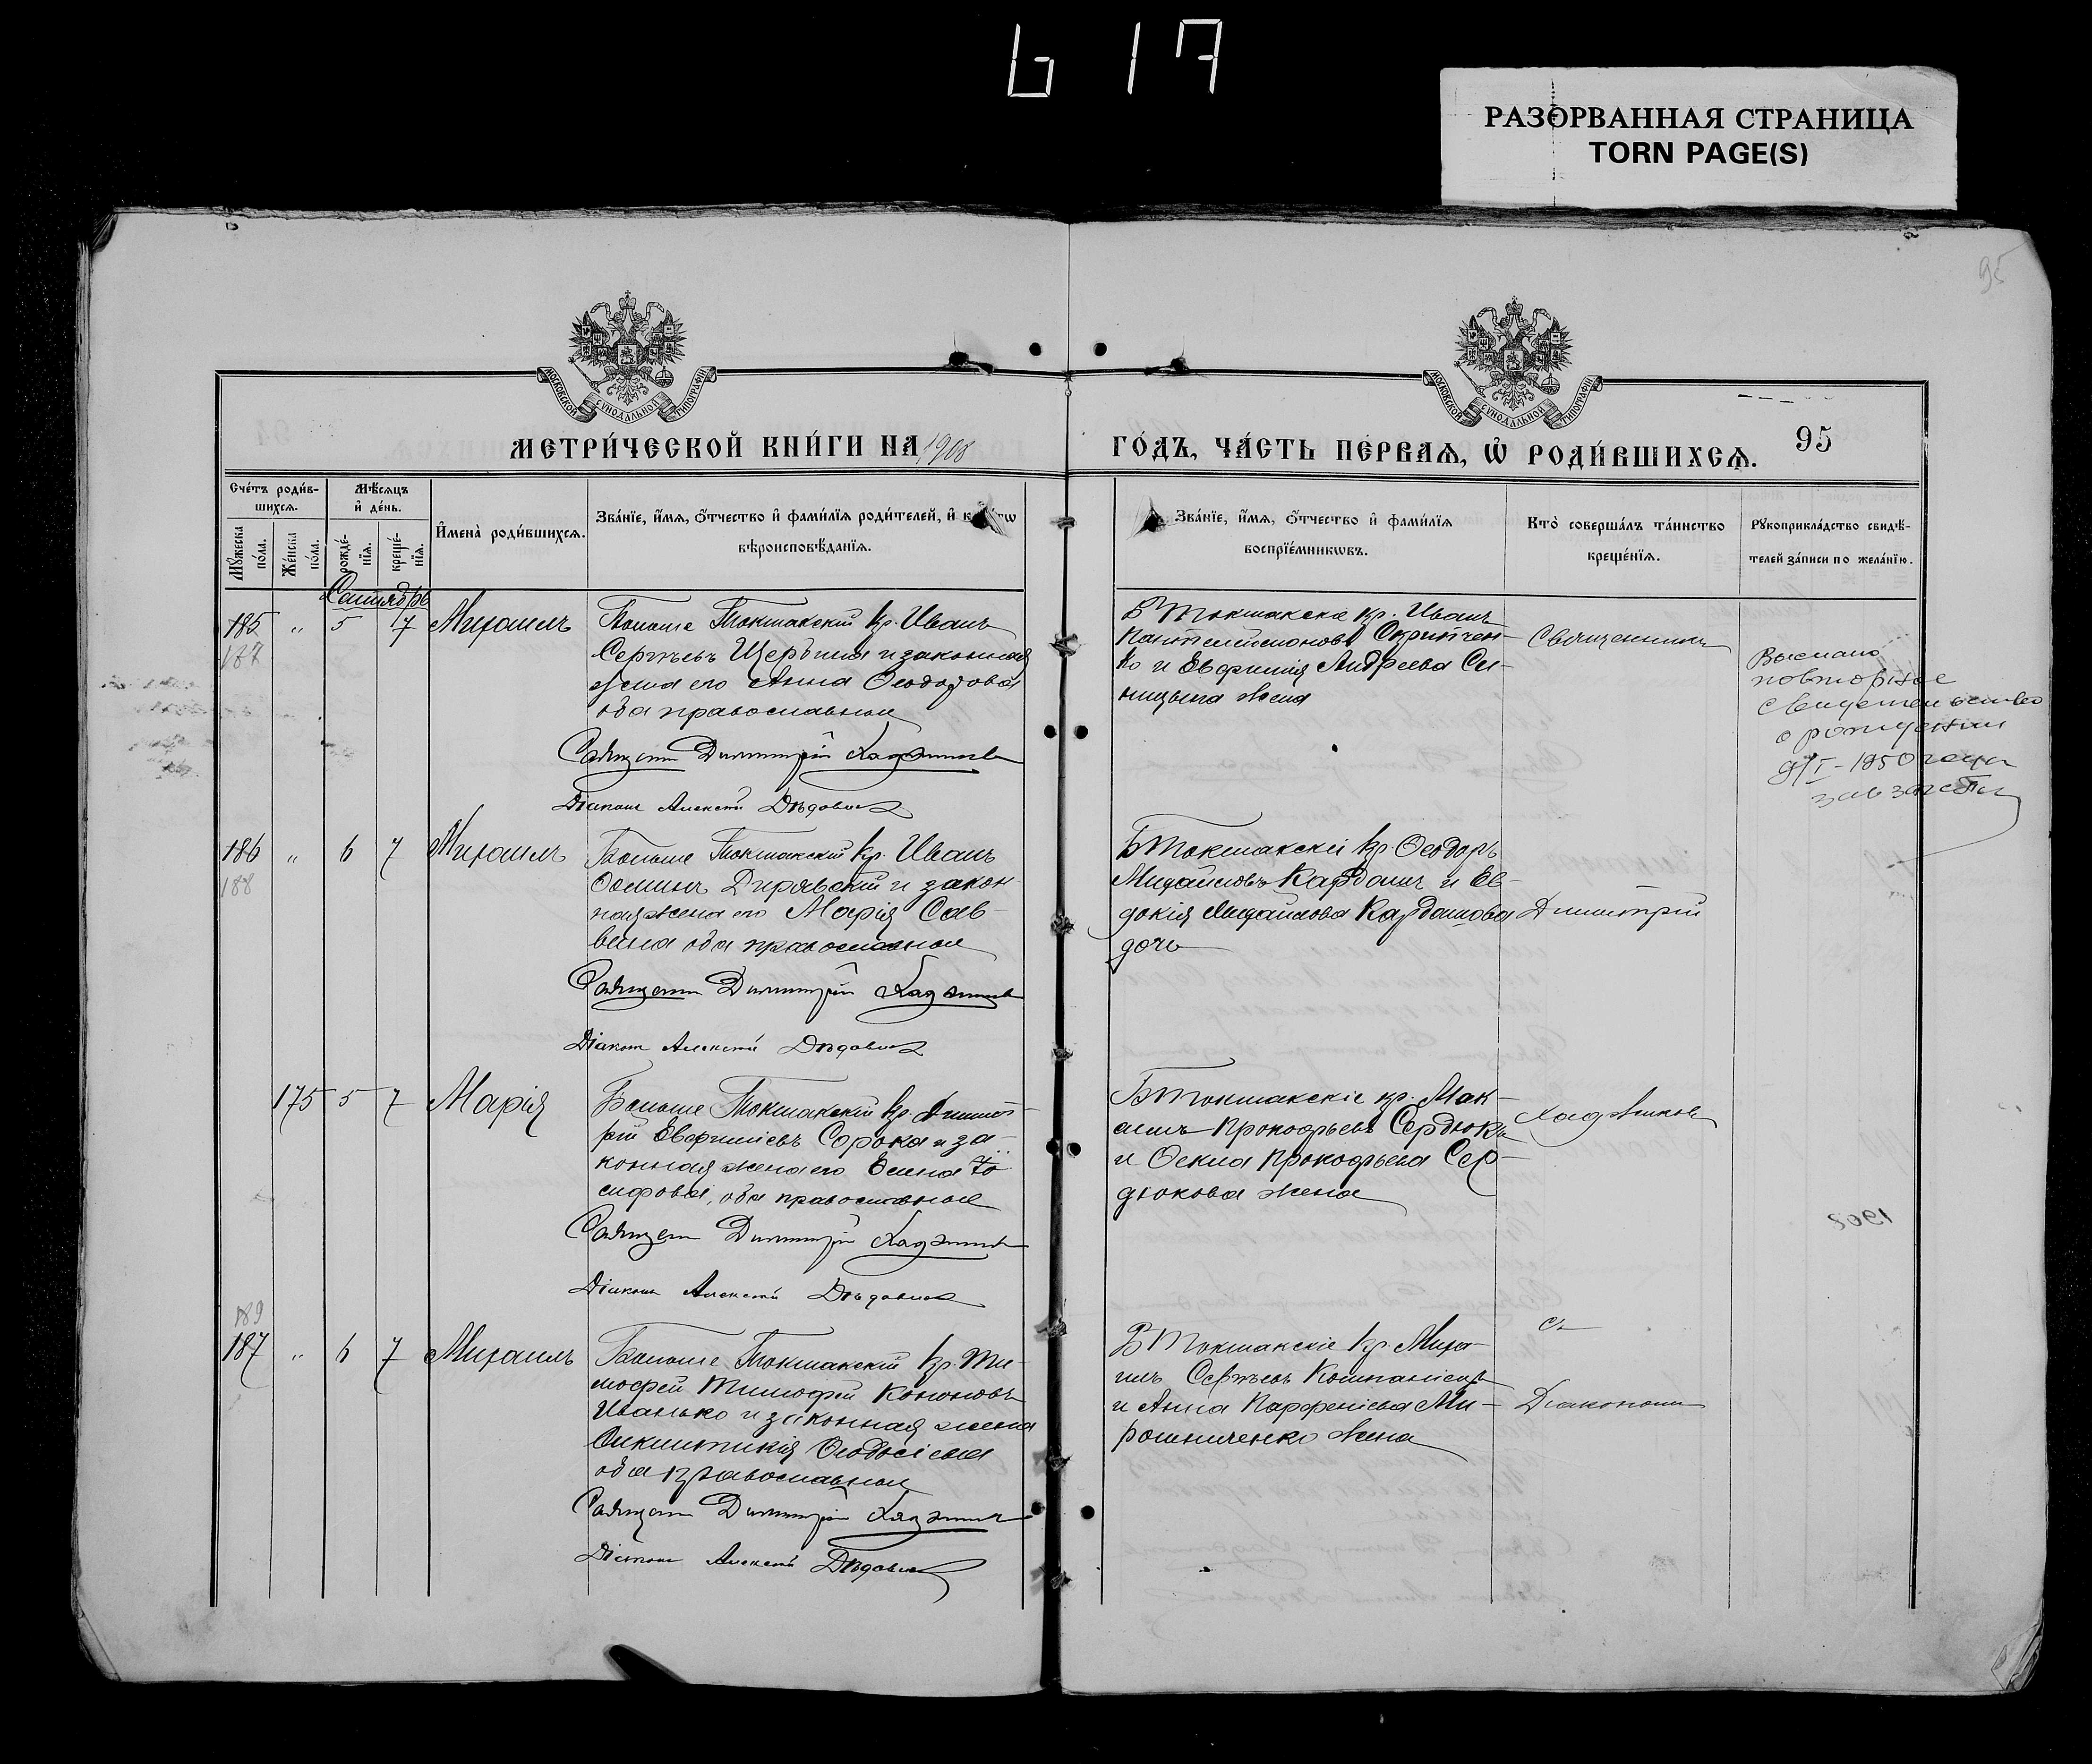 617
РАЗОРВАННАЯ СТРАНИЦА
TORN PAGE(S)
95
МОСКОВСКОЙ СѴНОДАЛЬНОЙ ТИПОГРАФІИ
МОСКОВСКОЙ СѴНОДАЛЬНОЙ ТИПОГРАФІИ
МЕТРИ́ЧЕСКОЙ КНИ́ГИ НА 1908
ГО́ДЪ, ЧА́СТЬ ПЕ́РВАѦ, Ѡ҆ РОДИ́ВШИХСѦ.
95
Сче́тъ роди́в-
шихсѧ.
Мꙋжеска по́ла.
Же́нска по́ла.
Мѣ́сѧцъ
и҆ де́нь.
рожде́-
нїѧ.
креще́-
нїѧ.
И҆мена̀ роди́вшихсѧ.
Зва́нїе, и҆́мѧ, ѻ҆́тчество и҆ фами́лїѧ роди́телей, и҆
вѣроисповѣ́данїѧ.
Зва́нїе, и҆́мѧ, ѻ҆́тчество и҆ фами́лїѧ
воспрїе́мникѡвъ.
Кто̀ соверша́лъ та́инство
креще́нїѧ.
Рꙋкоприкла́дство свидѣ́-
телей за́писи по жела́нїю.
Сентябрь
185
187
"
5
7
Михаилъ
Больше Токмакскій кр. Иванъ
Сергѣевъ Щербина и законная
жена его Анна Ѳеодорова
оба православные
Священ Димитрій Хаджиновъ
Діаконъ Алексѣй Дѣдовичъ
Б Токмакскіе кр. Иванъ
Пантелеймоновъ Скрипчен-
ко и Евфимія Андреева Си-
ницына жена
Священникъ
Выслано
повторное
свидетельство
о рождении
9/I - 1950 года
зав загса
186
188
"
6
7
Михаилъ
Больше Токмакскій кр. Иванъ
Ѳоминъ Дирявскій и закон-
ная жена его Марія Сав-
вина оба православные
Священ Димитрій Хаджиновъ
Діаконъ Алексѣй Дѣдовичъ
Б Токмакскіе кр. Ѳеодоръ
Михайловъ Кардашъ и Ев-
докія Михайлова Кардашова
дочь
Димитрій
175
5
7
Марія
Больше Токмакскій кр. Димит-
рій Евфиміевъ Сорока и за-
конная жена его Елена Іо-
сифова, оба православные
Священ Димитрій Хаджиновъ
Діаконъ Алексѣй Дѣдовичъ
Б Токмакскіе кр. Мак-
симъ Прокофьевъ Сердюкъ
и Ѳекла Прокофьева Сер-
дюкова жена
Хаджиновъ
1908
189
187
"
6
7
Михаилъ
Больше Токмакскій кр. Ти-
мофей Тимофей Кононовъ
Иванько и законная жена
Ѳеодосіева
оба православные
Священ Димитрій Хаджиновъ
Діаконъ Алексѣй Дѣдовичъ
Б Токмакскіе кр. Миха-
илъ Сергѣевъ Компаніецъ
и Анна Парфеніева Ми-
рошниченко жена
съ
Діакономъ